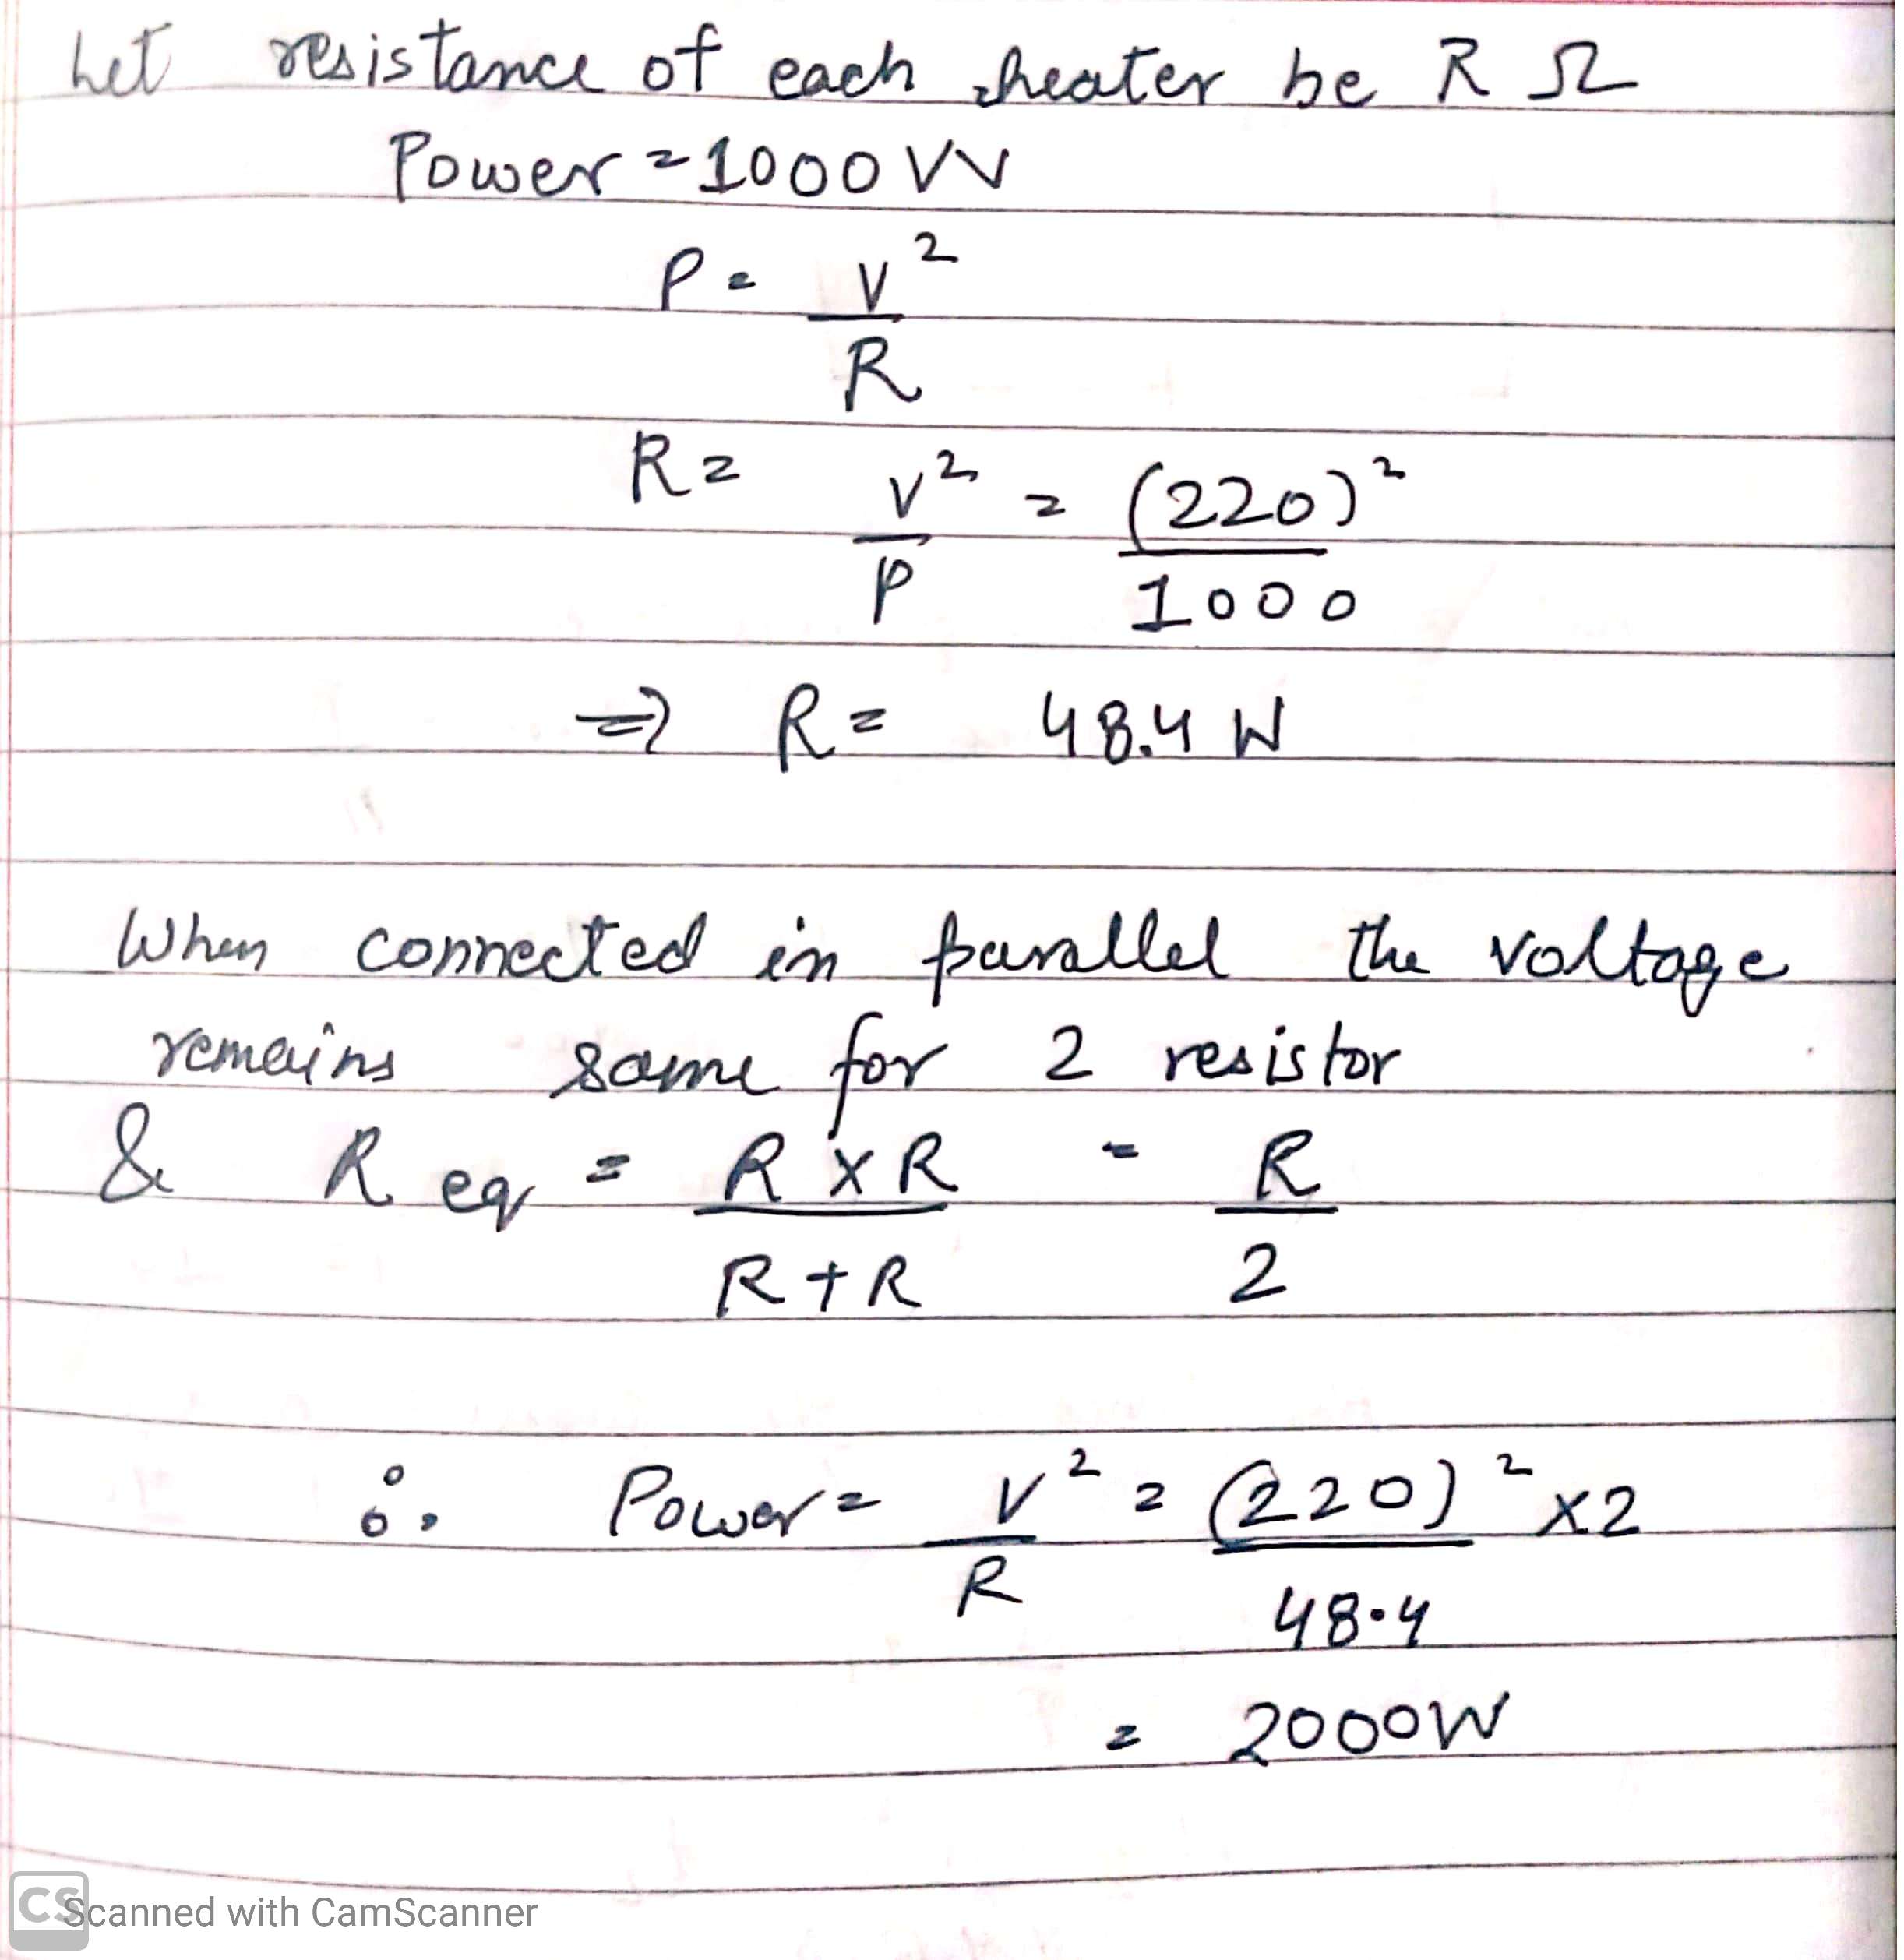 Let resistance of each heater be R Ω
Power = 1000 W
P = V²
R
R = V² = (220)²
P 1000
⇒ R = 48.4 W
When connected in parallel the voltage
remains same for 2 resistor
& R eq = R × R = R
R + R 2
∴ Power = V² = (220)² × 2
R 48.4
= 2000W
CS Scanned with CamScanner